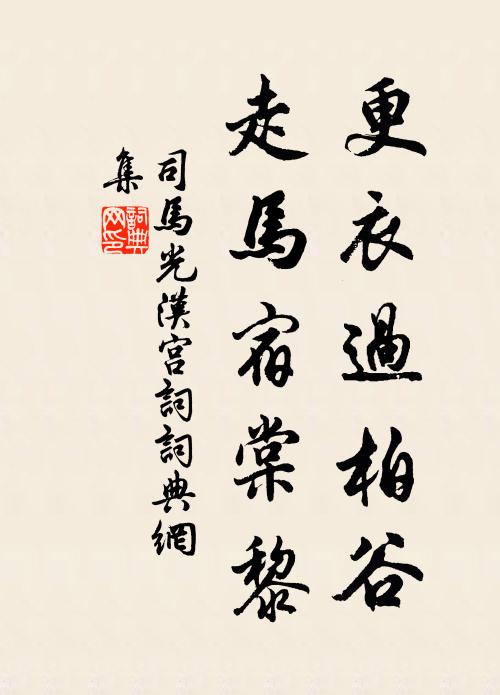 更衣過柏谷
走馬宿棠黎
司馬光漢宮詞詞典網
集
詞典网印